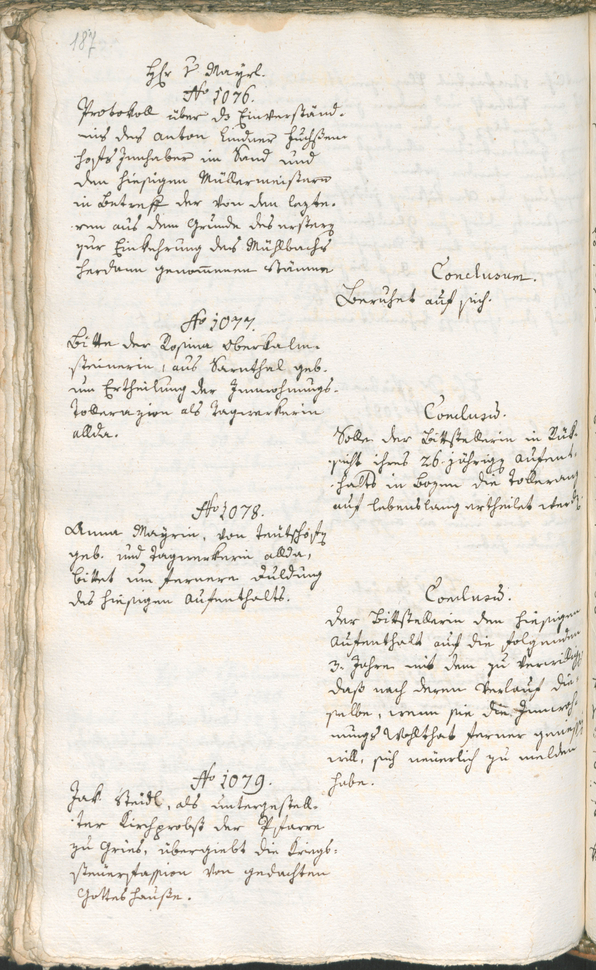 187
H[err] v Mayrl.
No 1076.
Protokoll über ds Einverständ-
nis des Anton Lindner Fuchsen-
hofs Innhaber im Sand und
den hiesigen Müllermeistern
in Betreff der von den lezte-
ren aus dem Grunde des erstern
zur Einkehrung des Mühlbachs
herdann genommenen Stämme
Conclusum.
Beruhet auf sich.
No 1077.
Bitte der Rosina Oberkalm-
steinerin, aus Sarnthal geb.
um Ertheilung der Innwohnungs-
Tollerazion als Tagwerkerin
allda.
Conclus:
Solle der Bittstellerin in Rük-
sicht ihres 26. jährigen Aufent-
halts in Bozen die Tolleranz
auf lebenslang ertheilet werden
No 1078.
Anna Mayrin, von Teutschofen
geb. und Tagwerkerin allda,
bittet um fernere Duldung
des hiesigen Aufenthalts.
Conclus:
Der Bittstellerin den hiesigen
Aufenthalt auf die folgenden
3. Jahre mit dem zu
daß nach deren Verlauf die-
selbe, wenn sie die Innwoh-
nungs Wohlthat ferner
will, sich neuerlich zu melden
habe.
No 1079.
Jak. Steidl, als untergestell-
ter Kirchprobst der Pfarre
zu Gries, übergiebt die Kriegs-
steuersfassion von gedachten
Gotteshauße.